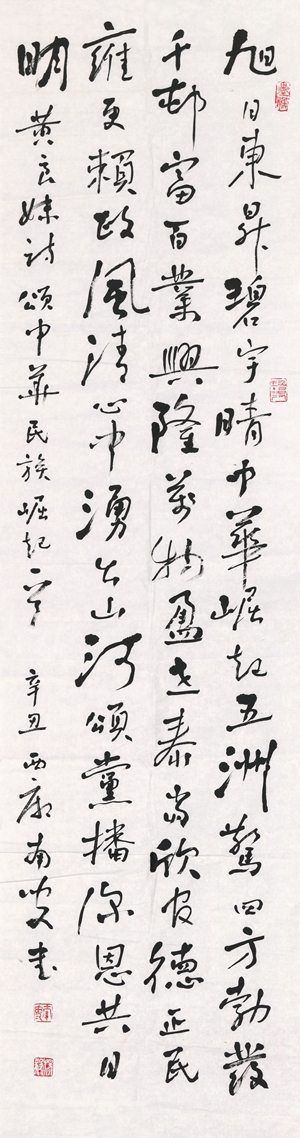 旭日東昇碧宇晴中華崛起五洲驚四方勃發
千邨富百業興隆萬物盈世泰當欣官德正民
雍更賴政風清心中湧出山河頌黨播深恩共日
明 黄良妹詩頌中華民族崛起一首 辛丑西廊南